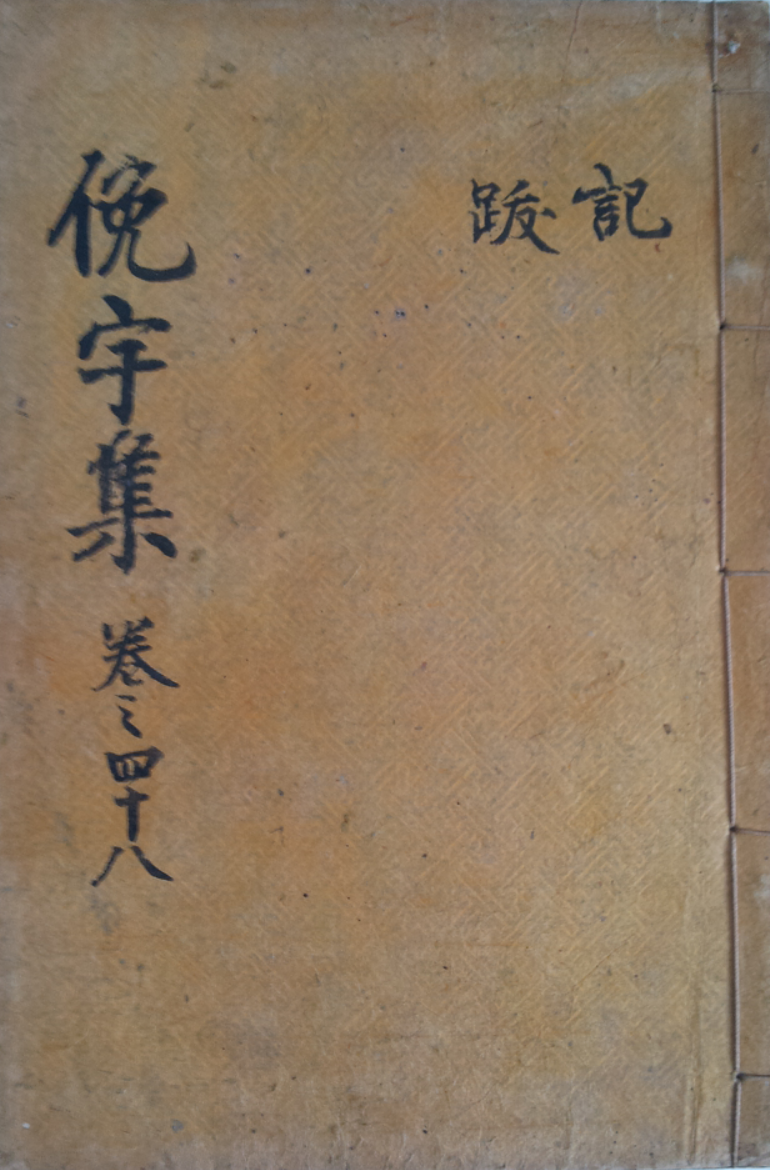 記
跋
俛宇集 卷之四十八